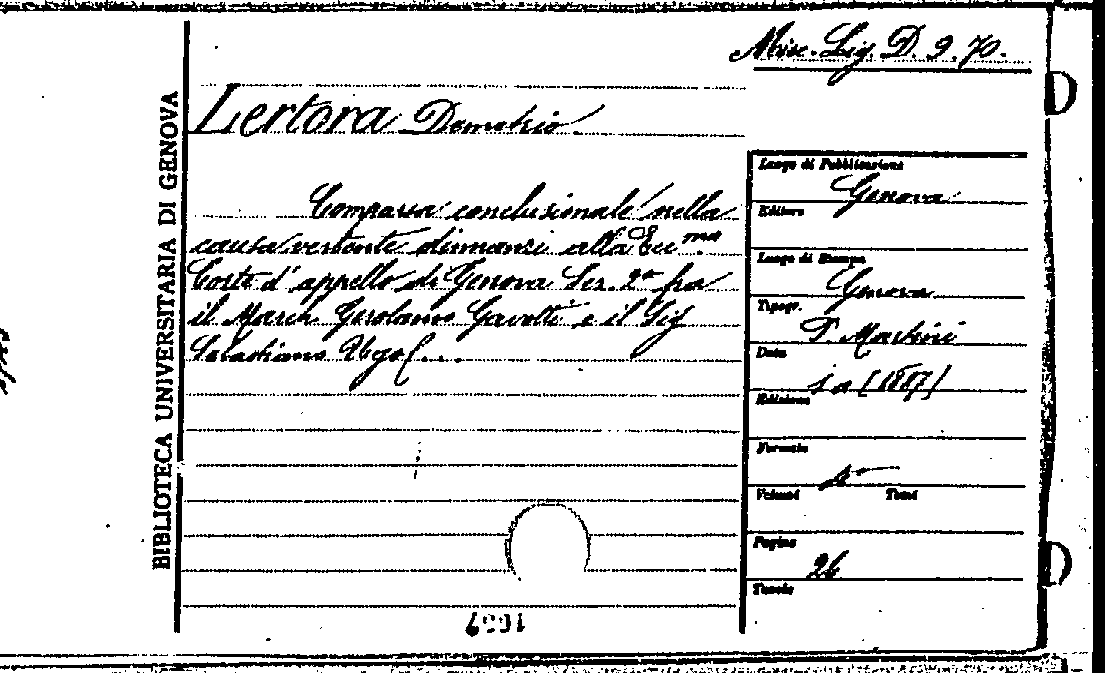 Misc. Lig. D. 9. 70.
BIBLIOTECA UNIVERSITARIA DI GENOVA
Lertora Demetrio.
Comparsa conclusionale nella
causa vertente dinnanzi alla Ecc.ma
Corte d'appello di Genova Sez. 2a fra
il March. Gerolamo Gavotti e il Sig
Sebastiano
Luogo di Pubblicazione
Genova
Editore
Luogo di Stampa
Genova
Tipogr.
P. Martini
Data
s a (1887)
Edizione
Formato
Volumi
Tomi
Pagine
26
Tavole